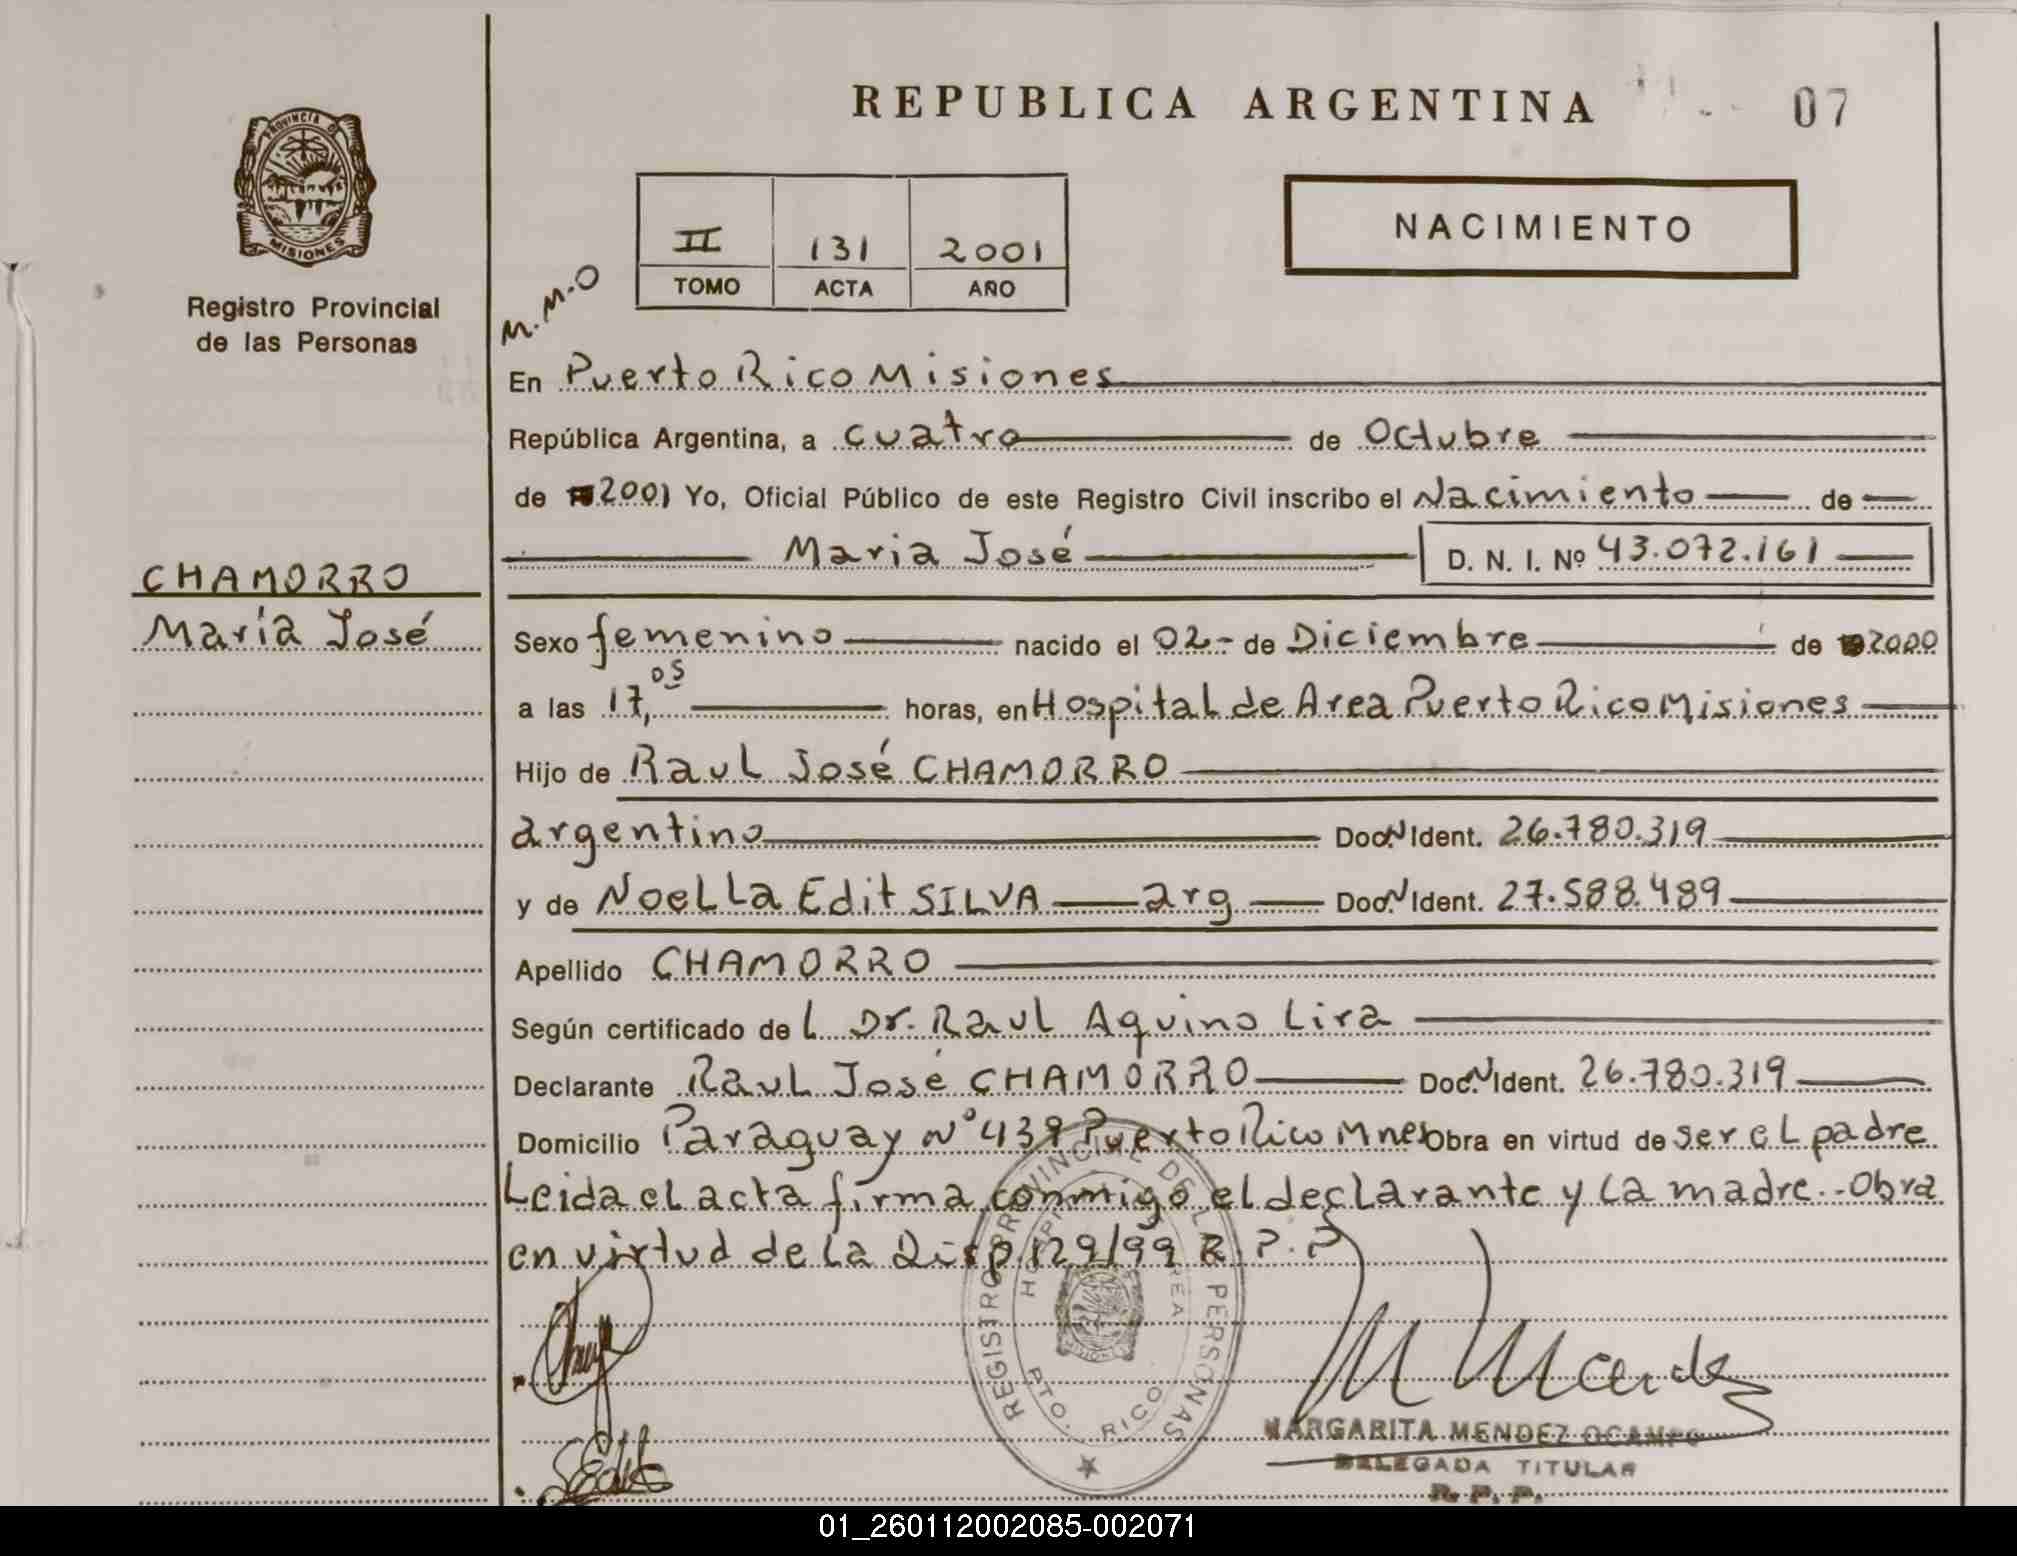 REPUBLICA ARGENTINA
07
PROVINCIA D
MISIONES
Registro Provincial
de las Personas
II 131 2001
TOMO ACTA AÑO
NACIMIENTO
M.M.O
En Puerto Rico Misiones
República Argentina, a cuatro de Octubre
de 2001 Yo, Oficial Público de este Registro Civil inscribo el Nacimiento de
Maria José D. N. I. Nº 43.072.161
CHAMORRO
María José
Sexo femenino nacido el 02- de Diciembre de 2000
a las 17,05 horas, en Hospital de Area Puerto Rico Misiones
Hijo de Raul José CHAMORRO
argentino Doc. N Ident. 26.780.319
y de Noella Edit SILVA arg Doc. N Ident. 27.588.489
Apellido CHAMORRO
Según certificado de L Dr. Raul Aquino Lira
Declarante Raul José CHAMORRO Doc. N Ident. 26.780.319
Domicilio Paraguay N° 439 Puerto Rico Mnes Obra en virtud de ser el padre
Leida el acta firma conmigo el declarante y la madre.- Obra
en virtud de la Disp 129/99 R.P.P
REGISTRO PROVINCIAL DE LAS PERSONAS
PTO. RICO
MARGARITA MENDEZ OCAMPO
DELEGADA TITULAR
R. P. P.
01_260112002085-002071